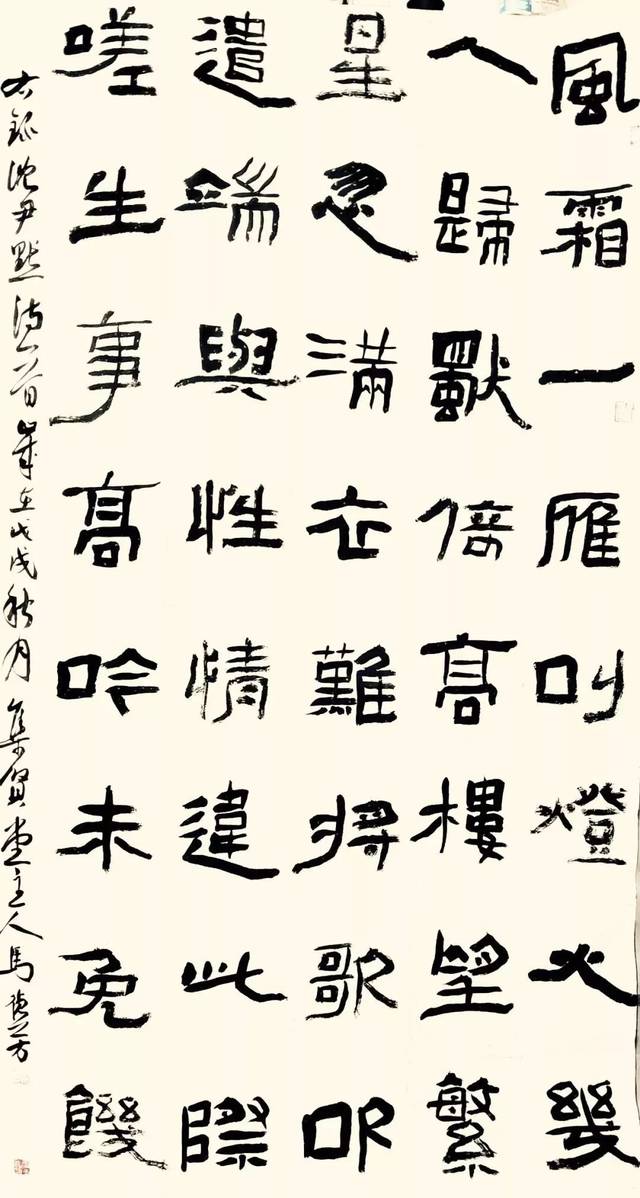 風霜一雁叫燈火幾
人歸獨倚高樓望繁
星忽滿衣難將歌叩
遣端與性情違此際
嗟生事高吟未免饑
右錄沈尹默詩一首歲在戊戌秋月集賢堂主人馬